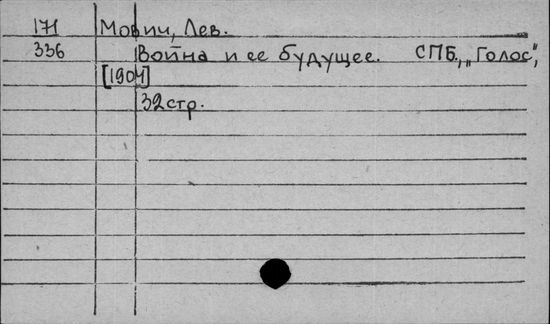 171 Мович, Лев.
336 Война и ее будущее. СПБ., „Голос",
[1904]
32 стр.